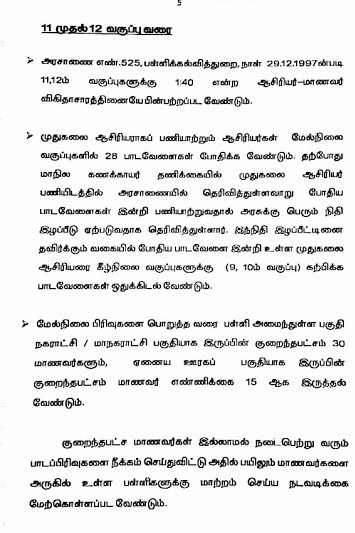 5
11 முதல் 12 வகுப்பு வரை
➢ அரசாணை எண்.525, பள்ளிக்கல்வித்துறை, நாள் 29.12.1997ன்படி
11,12ம் வகுப்புகளுக்கு 1:40 என்ற ஆசிரியர்-மாணவர்
விகிதாசாரத்தினையே பின்பற்றப்பட வேண்டும்.
➢ முதுகலை ஆசிரியராகப் பணியாற்றும் ஆசிரியர்கள் மேல்நிலை
வகுப்புகளில் 28 பாடவேளைகள் போதிக்க வேண்டும். தற்போது
மாநில கணக்காயர் தணிக்கையில் முதுகலை ஆசிரியர்
பணியிடத்தில் அரசாணையில் தெரிவித்துள்ளவாறு போதிய
பாடவேளைகள் இன்றி பணியாற்றுவதால் அரசுக்கு பெரும் நிதி
இழப்பீடு ஏற்படுவதாக தெரிவித்துள்ளார். இந்நிதி இழப்பீட்டினை
தவிர்க்கும் வகையில் போதிய பாடவேளை இன்றி உள்ள முதுகலை
ஆசிரியரை கீழ்நிலை வகுப்புகளுக்கு (9, 10ம் வகுப்பு) கற்பிக்க
பாடவேளைகள் ஒதுக்கிடல் வேண்டும்.
➢ மேல்நிலை பிரிவுகளை பொறுத்த வரை பள்ளி அமைந்துள்ள பகுதி
நகராட்சி / மாநகராட்சி பகுதியாக இருப்பின் குறைந்தபட்சம் 30
மாணவர்களும், ஏனைய ஊரகப் பகுதியாக இருப்பின்
குறைந்தபட்சம் மாணவர் எண்ணிக்கை 15 ஆக இருத்தல்
வேண்டும்.
குறைந்தபட்ச மாணவர்கள் இல்லாமல் நடைபெற்று வரும்
பாடப்பிரிவுகளை நீக்கம் செய்துவிட்டு அதில் பயிலும் மாணவர்களை
அருகில் உள்ள பள்ளிகளுக்கு மாற்றம் செய்ய நடவடிக்கை
மேற்கொள்ளப்பட வேண்டும்.